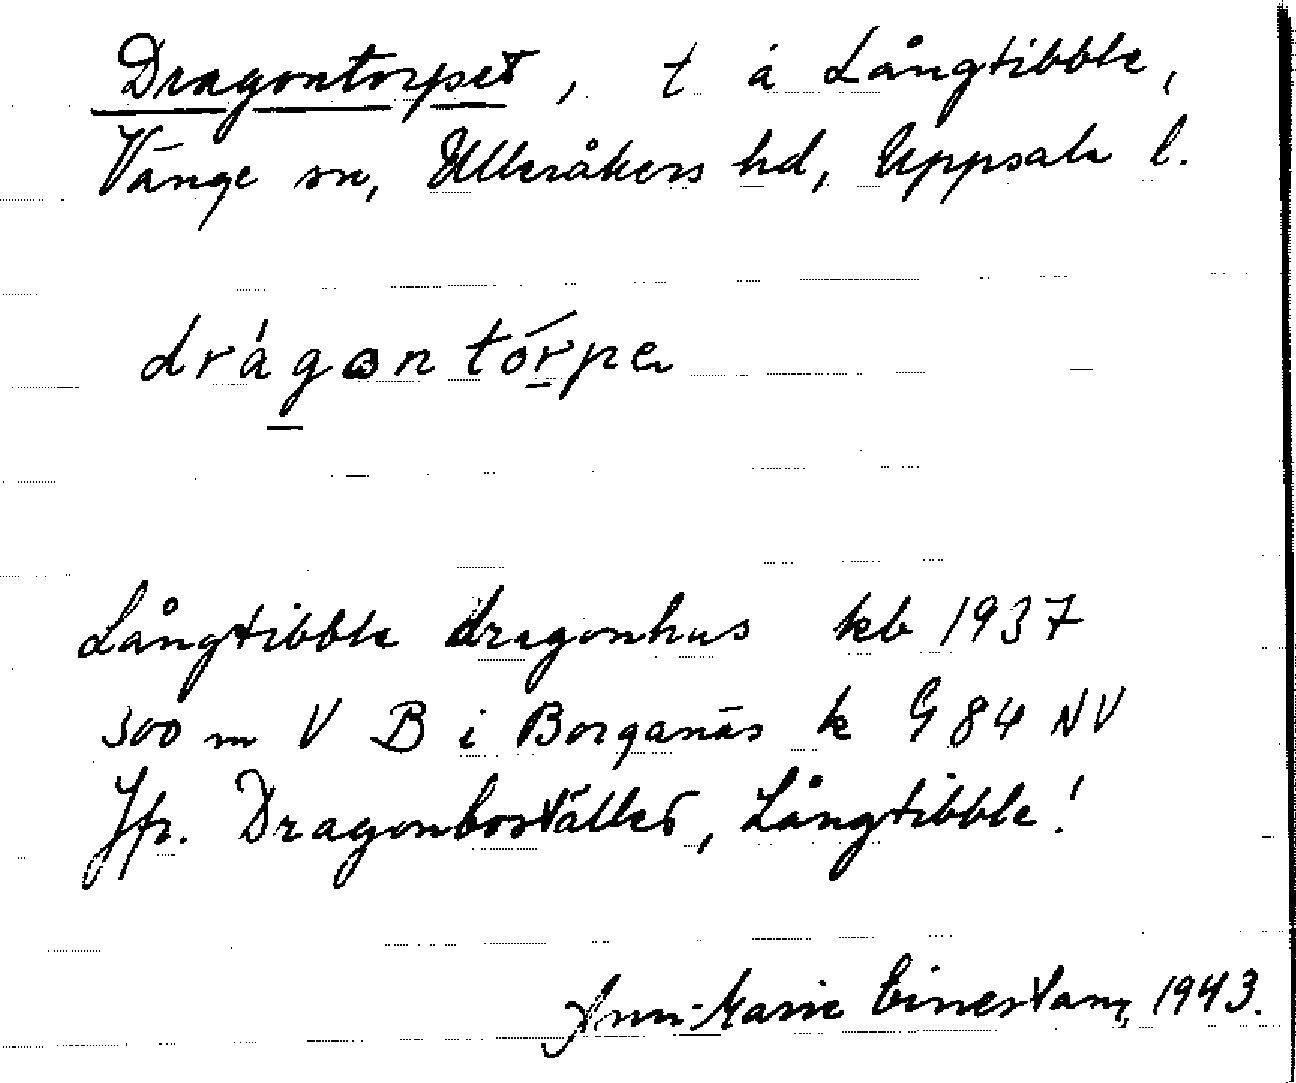 Dragontorpet, t å Långtibble,
Vänge sn, Ulleråkers hd, Uppsala l.
drágontórpe
Långtibble dragonhus kb 1937
300 m V B i Borganäs k G 84 NV
Jfr. Dragonbostället, Långtibble!
Ann-Marie Einerstam, 1943.